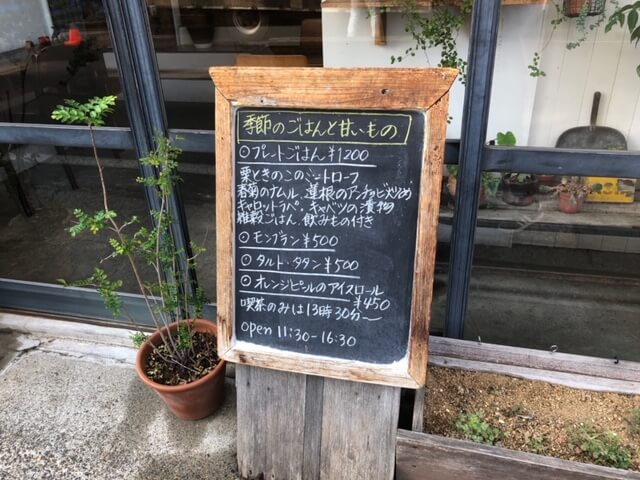 季節のごはんと甘いもの
⊙プレートごはん ¥1200
栗ときのこのミートローフ
春菊のナムル、蓮根のアンチョビ炒め
キャロットラペ、キャベツの漬物
雑穀ごはん、飲みもの付き
⊙モンブラン ¥500
⊙タルト・タタン ¥500
⊙オレンジピールのアイスロール
¥450
喫茶のみは13時30分〜
open 11:30-16:30